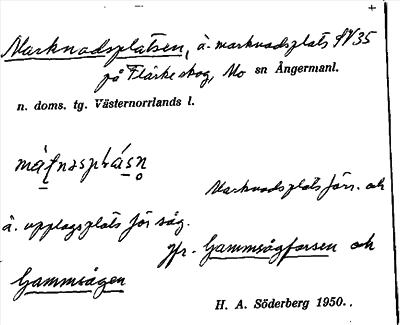 Marknadsplatsen, å. marknadsplats
på Flärke skog, Mo sn Ångermanl.
n. doms. tg. Västernorrlands l.
Marknadsplats förr. och
å. upplagsplats för såg.
Jfr. Gammsågforsen och
Gammsågen
H. A. Söderberg 1950..